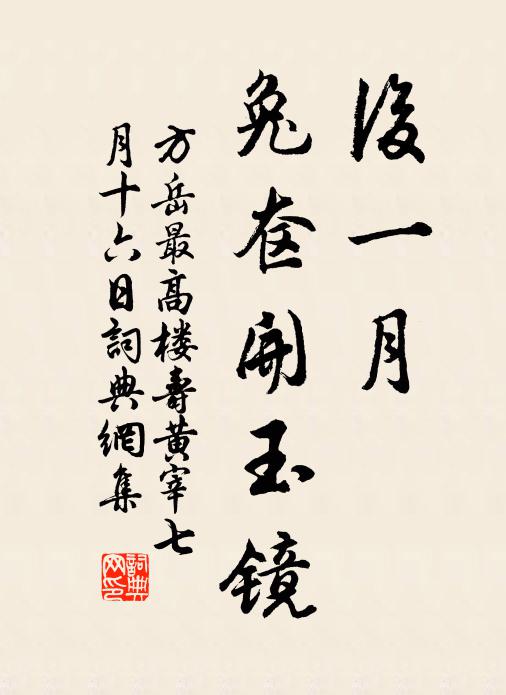 後一月
兔奁開玉镜
方岳最高楼壽黄宰七
月十六日詞典網集
詞典
网印